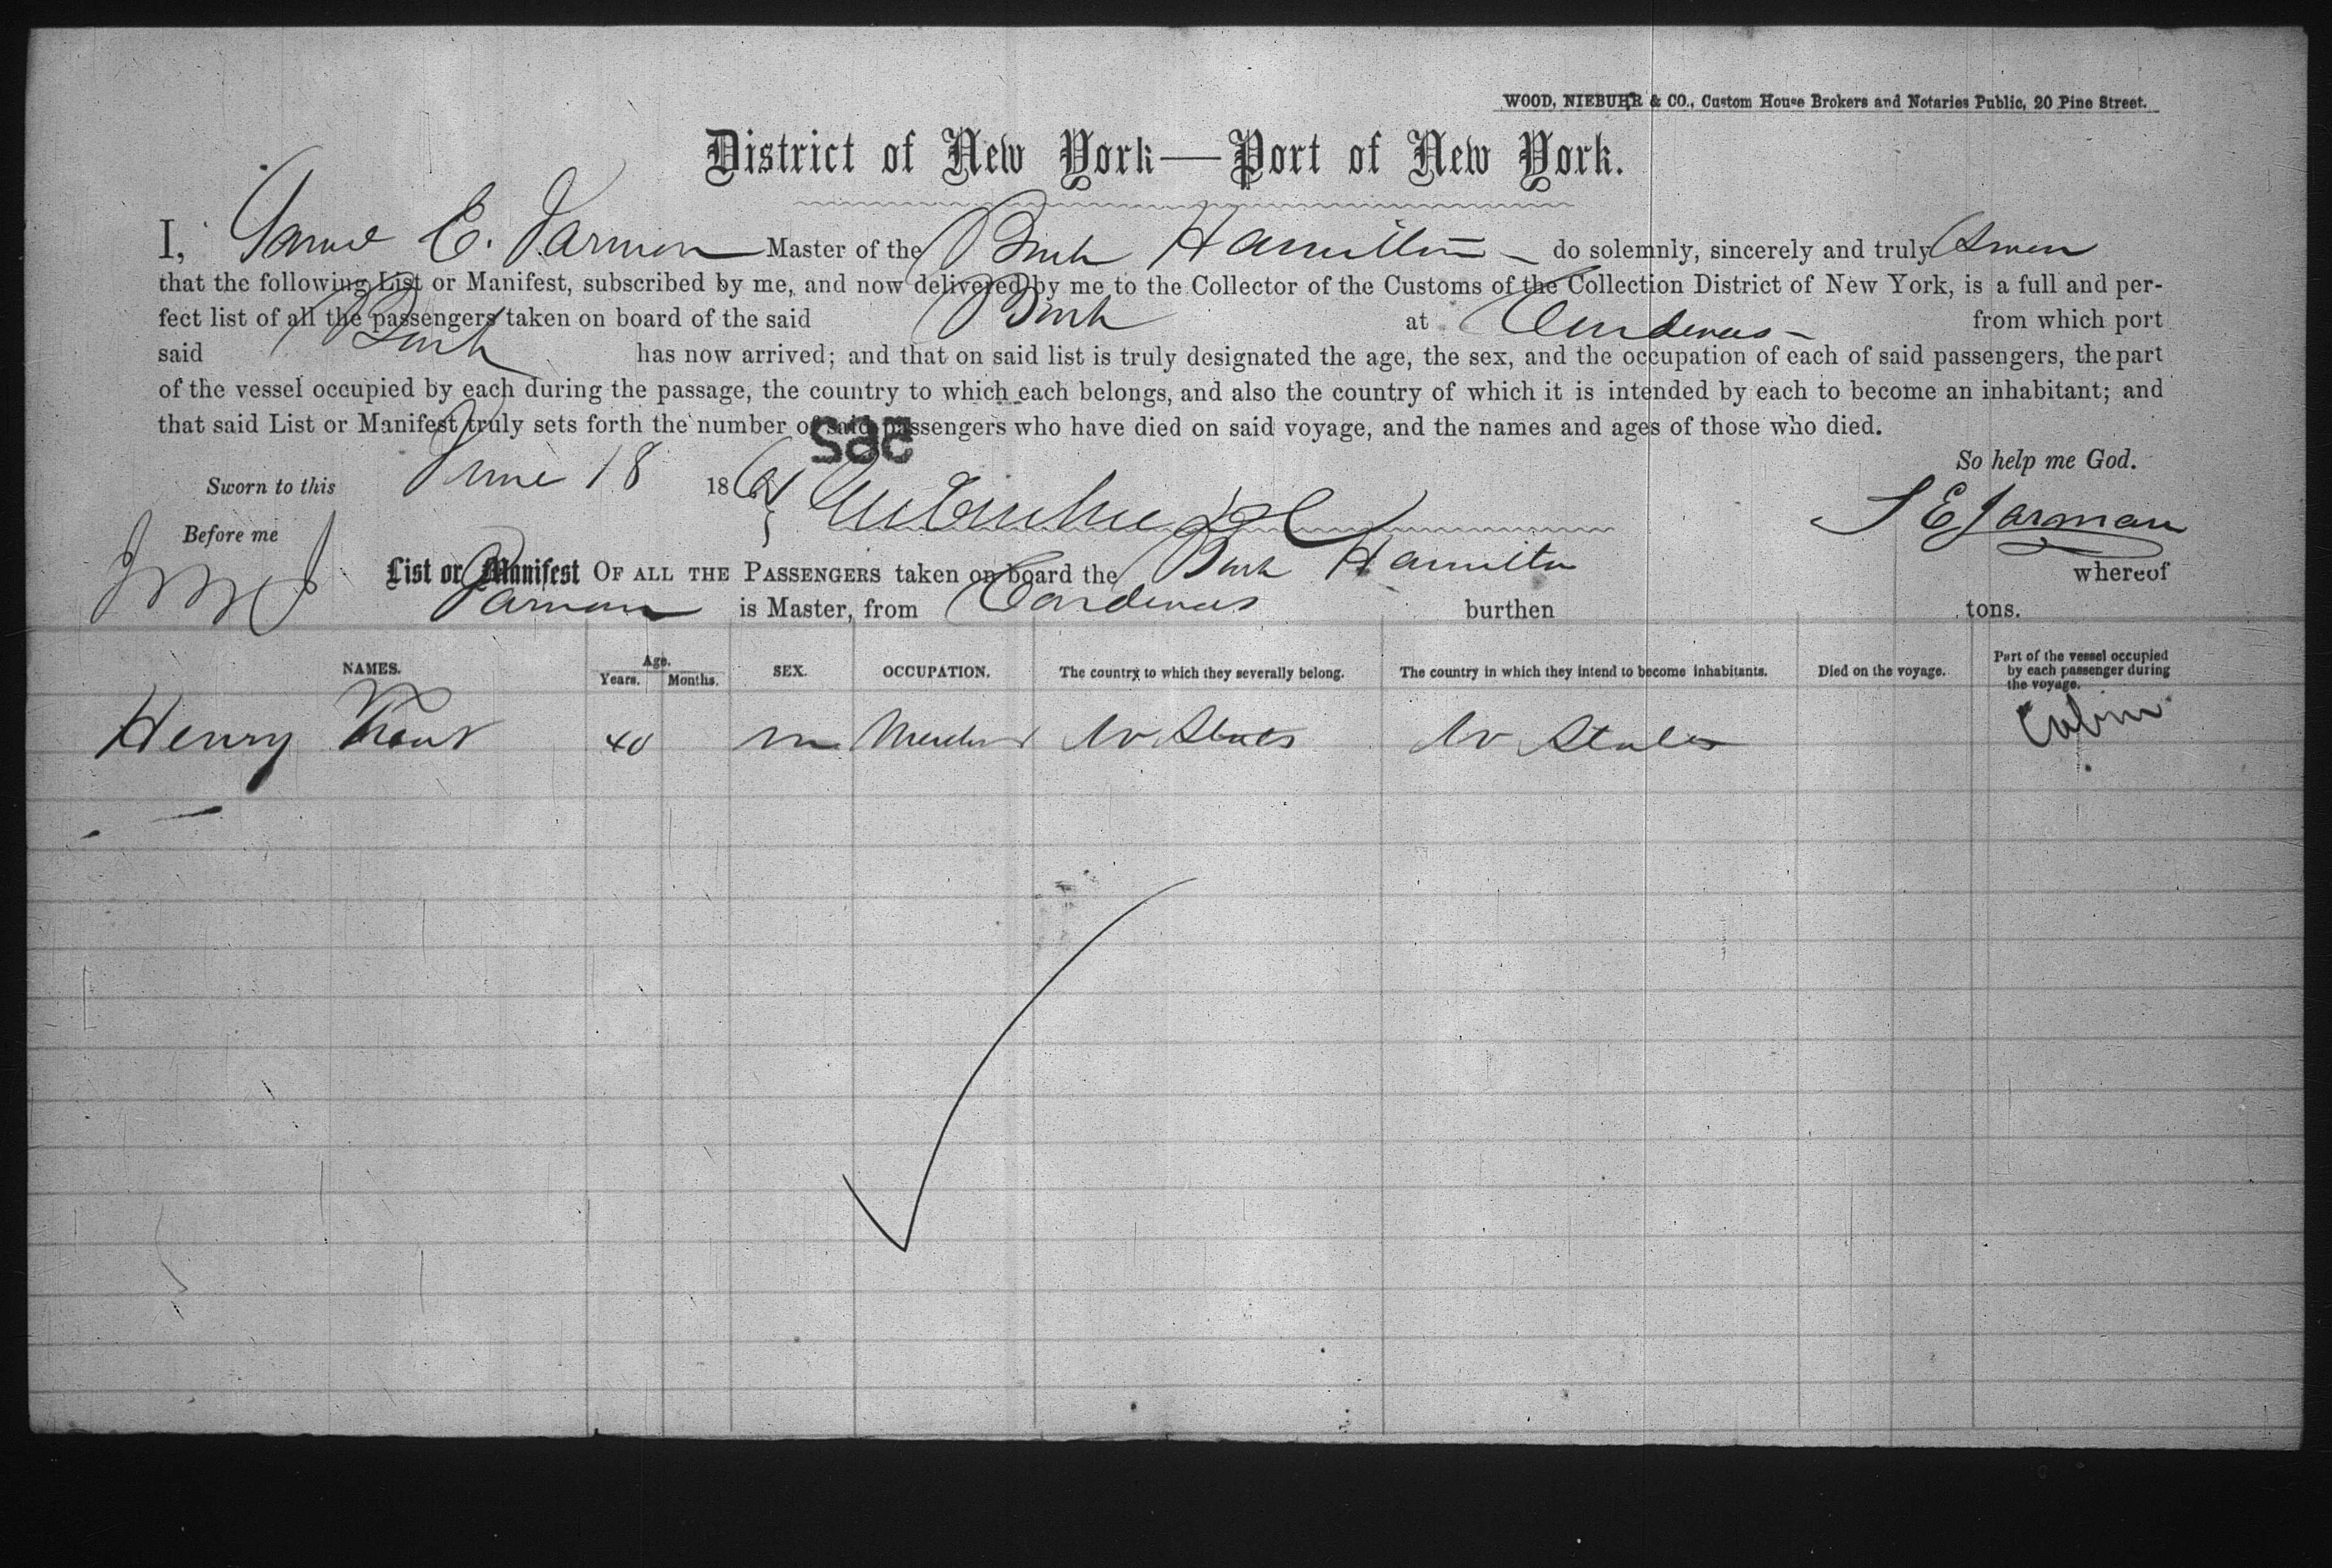 WOOD, NIEBUHR & CO., Custom House Brokers and Notaries Public, 20 Pine Street.
District of New York—Port of New York.
I, Samuel E. Jarman Master of the Bark Hamilton do solemnly, sincerely and truly Swear
that the following List or Manifest, subscribed by me, and now delivered by me to the Collector of the Customs of the Collection District of New York, is a full and per-
fect list of all the passengers taken on board of the said Bark at Cardenas from which port
said Bark has now arrived; and that on said list is truly designated the age, the sex, and the occupation of each of said passengers, the part
of the vessel occupied by each during the passage, the country to which each belongs, and also the country of which it is intended by each to become an inhabitant; and
that said List or Manifest truly sets forth the number of said passengers who have died on said voyage, and the names and ages of those who died.
So help me God.
Sworn to this June 18 186
S E Jarman
Before me
List or Manifest OF ALL THE PASSENGERS taken on board the Bark Hamilton whereof
Jarman is Master, from Cardenas burthen tons.
NAMES. Age. Years. Months. SEX. OCCUPATION. The country to which they severally belong. The country in which they intend to become inhabitants. Died on the voyage. Part of the vessel occupied by each passenger during the voyage.
Henry 40 m U States U States Cabin